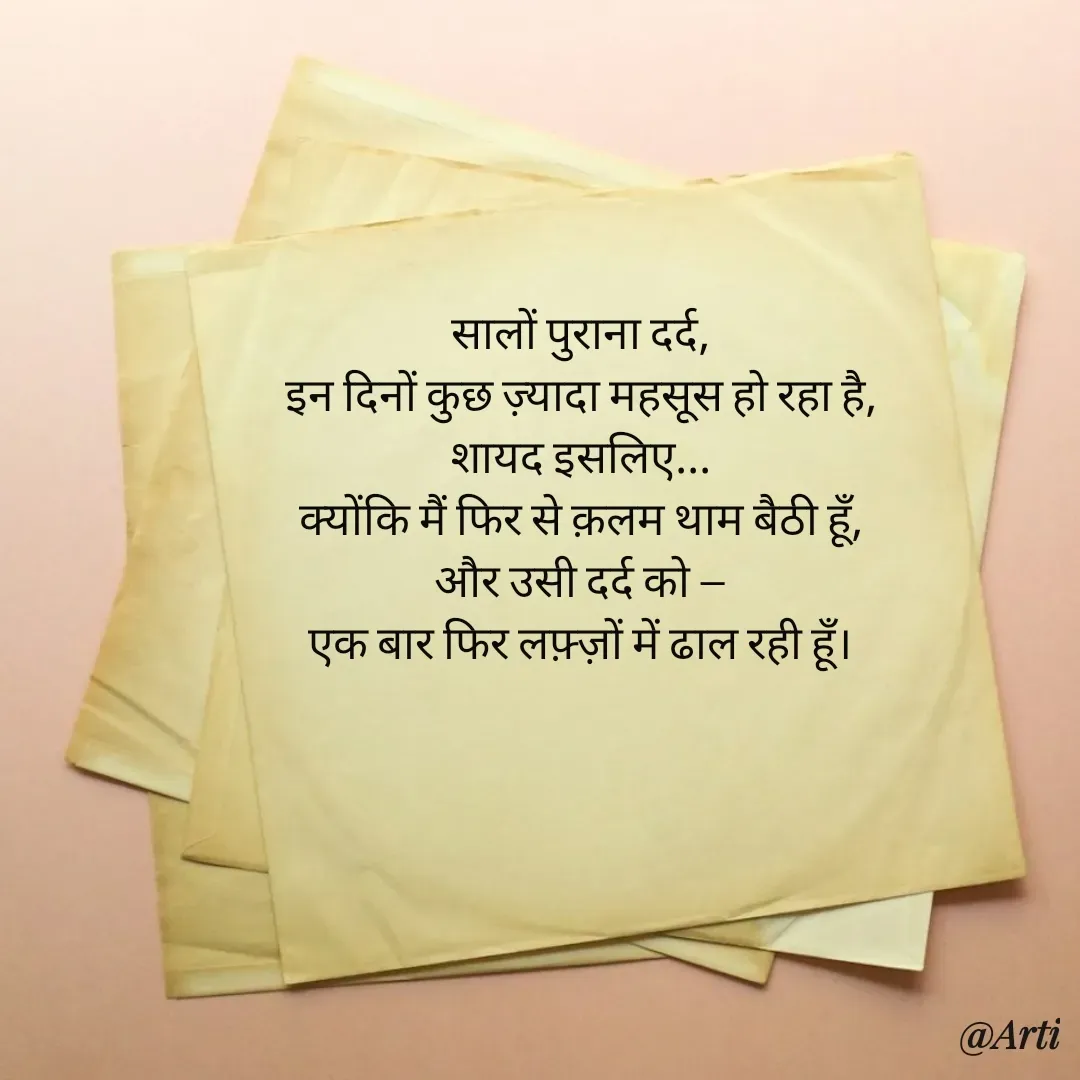 सालों पुराना दर्द,
इन दिनों कुछ ज़्यादा महसूस हो रहा है,
शायद इसलिए...
क्योंकि मैं फिर से क़लम थाम बैठी हूँ,
और उसी दर्द को –
एक बार फिर लफ़्ज़ों में ढाल रही हूँ।
@Arti